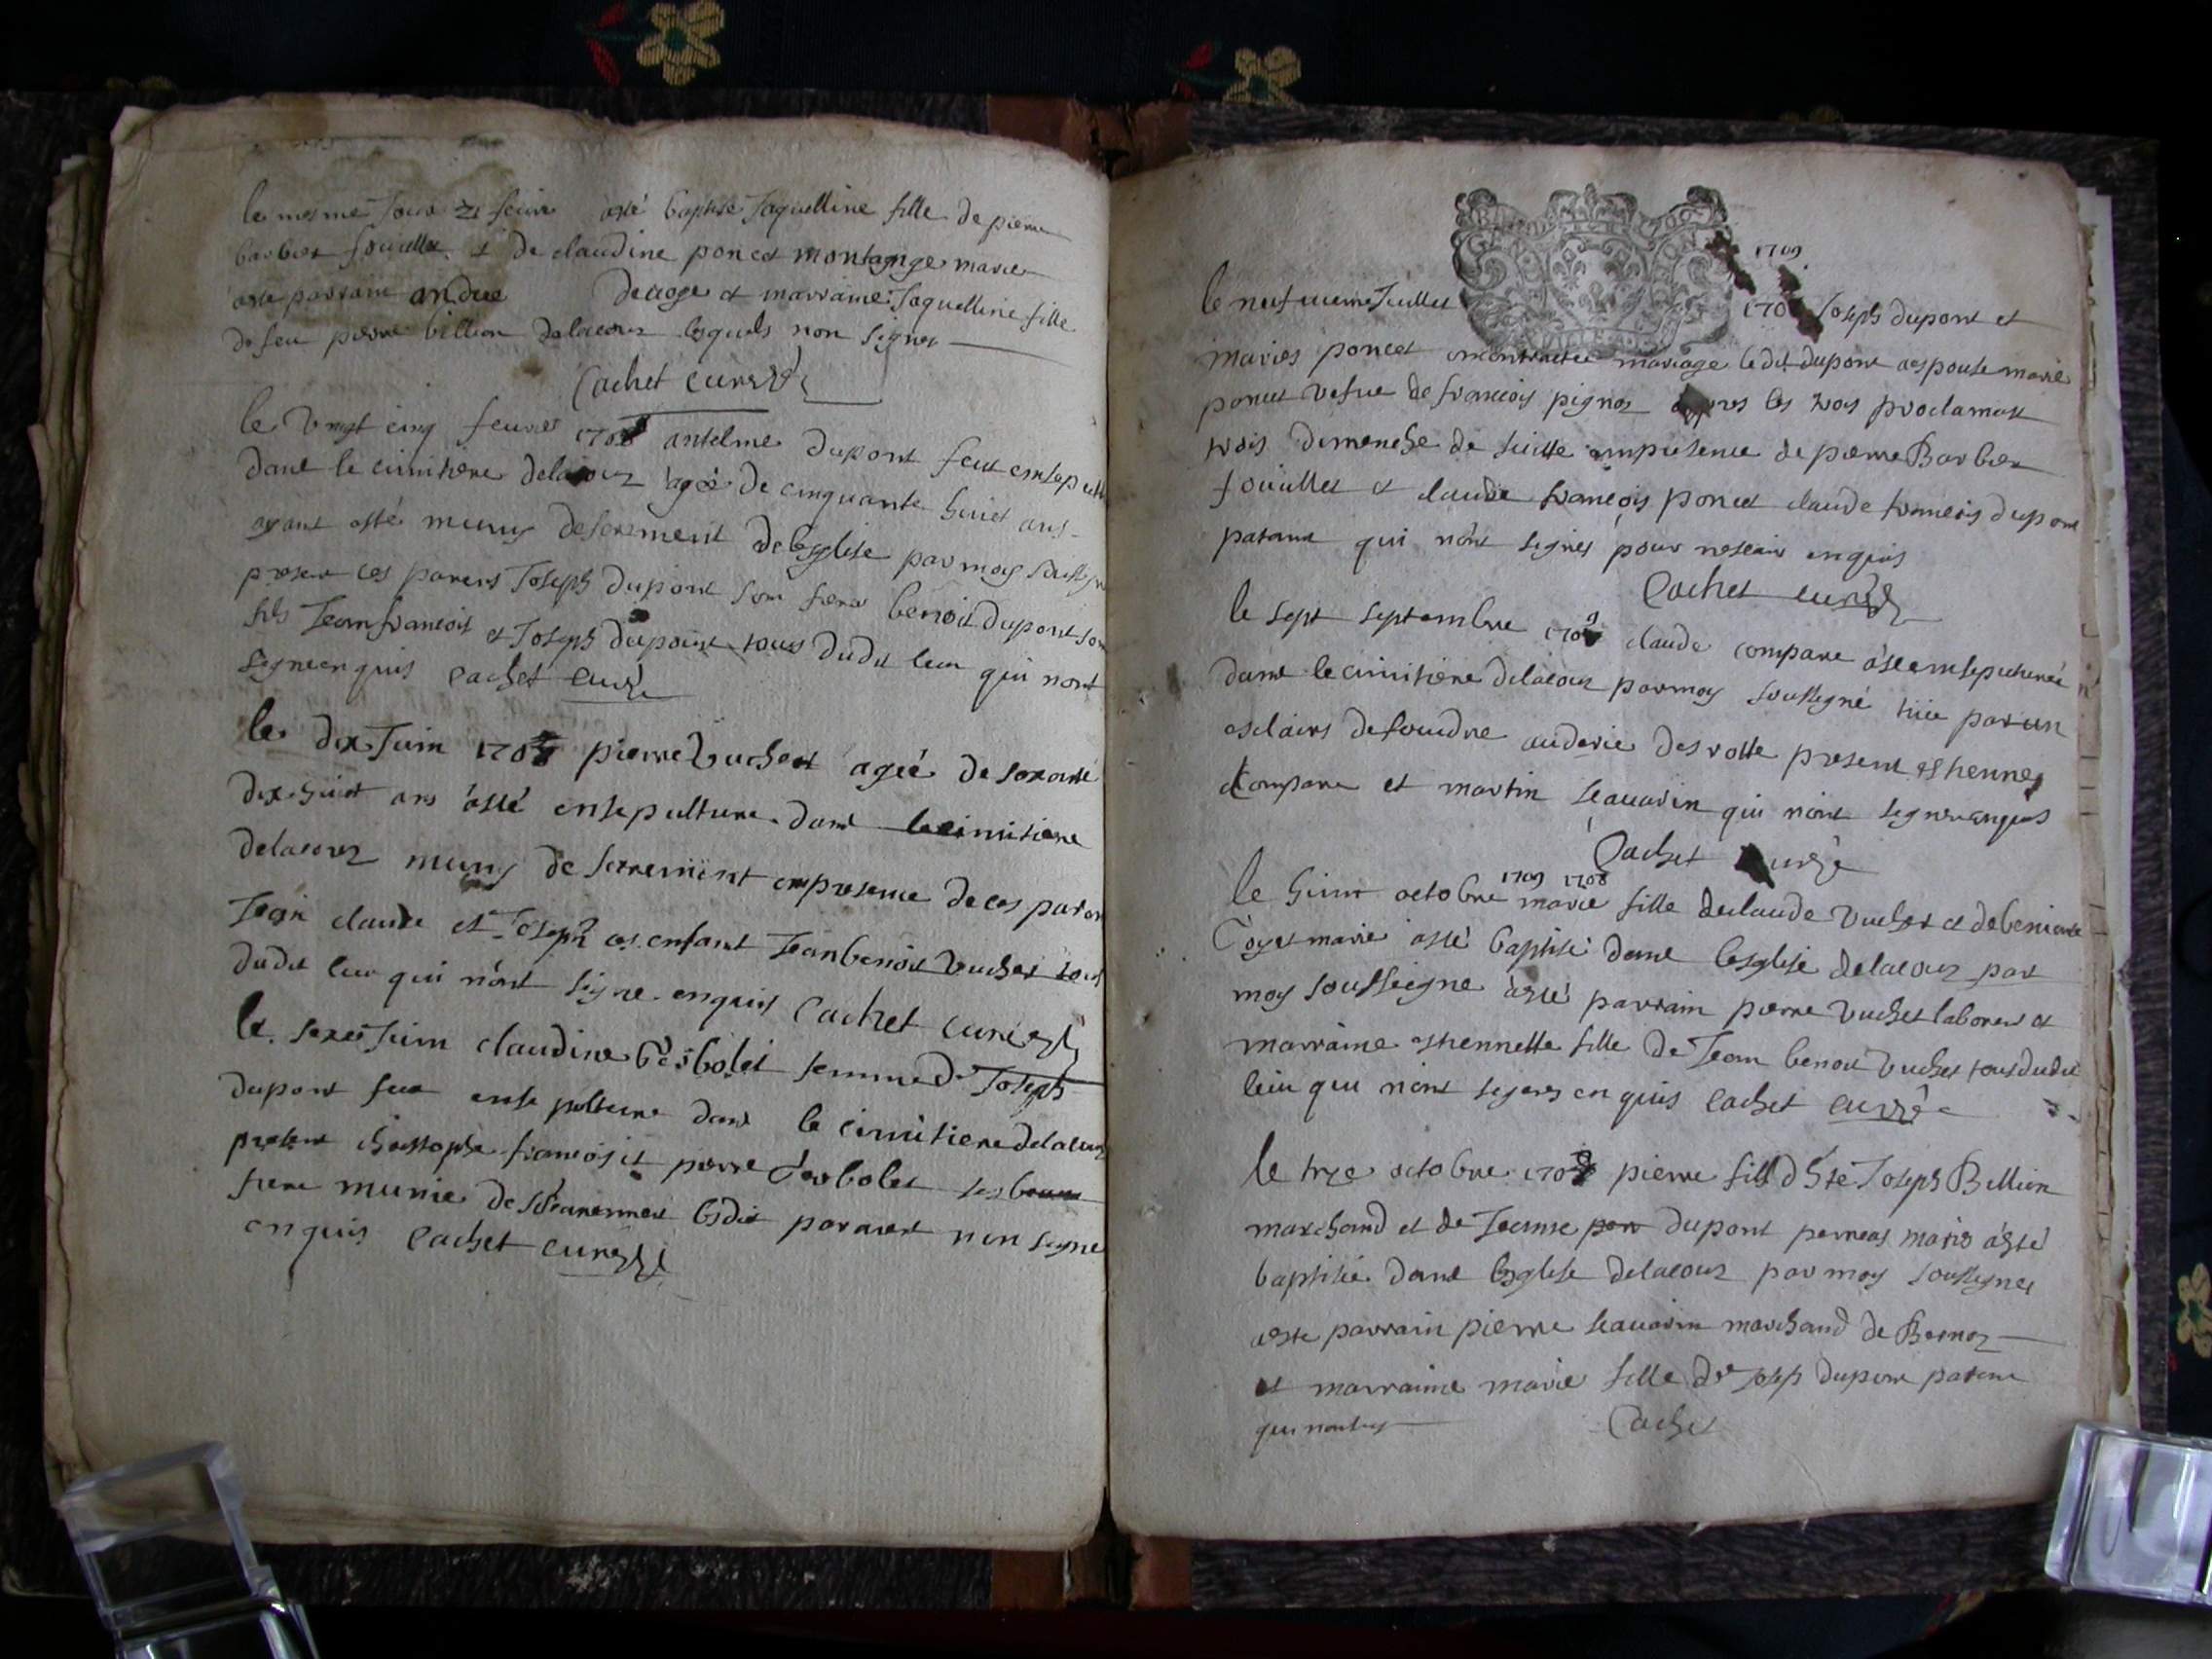 le mesme Jour 21 feuire asté baptisé Jaquelline fille de pierre
barbier fouiller et de claudine poncet montagnge marie
aste parraine andree decroze et marraine Jaquelline fille
de feu pierre billion delacour lesquels non signes
Cachet curé
le vingt cinq feuries 1709 antelme dupont feut ensepult
dant le cimitiere delacour agée de cinquante huict ans
ayant asté munis de serement de leglise par moy
present ces parens Joseph dupont son frere benoit dupont son
fils Jean francois et Joseph dupont tous dudit lieu qui nont
signe enquis cachet curé
le dix Juin 1709 pierre vuchet agée de soxante
dix huict ans asté ensepulture dant le cimitiere
delacour munis de serement en presence de ces paran
Jean claude et Joseph ces enfant Jean benoit vuchet tous
dudit lieu qui nont signe enquis Cachet curé
le Juin claudine Gesbolet femme de Joseph
dupont feut ensepulture dant le cimitiere delacour
present christophe francois et pierre Gesbolet ses
frere munie de lesdit parent non signe
enquis Cachet curé
1709
le neufuieme Juillet 170 Joseph dupont et
maries poncet contractee mariage le dit dupont aespouse marie
poncet vefue de francois pignoz apres les trois proclamast
trois dimenche de suitte en presence de pierre Barbier
fouiller et claude francois poncet claude francois dupont
parant qui nont signes pour ne scair enquis
Cachet curé
le sept septembre 1709 claude compare asté ensepulturé
dant le cimitiere delacour par moy soussigné tuée par un
esclairs de foudre present esthenne
Compare et martin seauarin qui niont signer enquis
Cachet curé
1709 1708
le huict octobre marie fille de claude vuchet et de
Goyet marie asté baptisé dant leglise delacour par
moy soussigne asté parrain pierre vuchet laboreur et
marraine esthennette fille de Jean benoit vuchet tous dudit
lieu qui niont signers enquis Cachet curé
le treze octobre 1709 pierre fils d Joseph Billion
marchand et de Jeanne dupont perneas maries asté
baptisée dant leglise delacour par moy soussignes
aeste parrain pierre seauarin marchand de Bornoz
et marraine marie fille de Joseph dupont parant
qui
Cachet